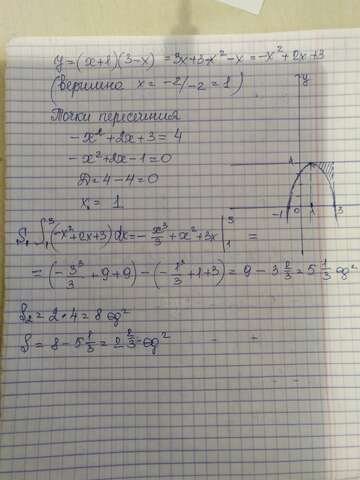 y = (x+1)(3-x) = 3x+3-x²-x = -x²+2x+3
(вершина x = -2/-2 = 1)
Точки пересечения
-x²+2x+3 = 4
-x²+2x-1=0
D=4-4=0
x = 1
S₁ ∫₁³ (-x²+2x+3)dx = -x³/3 + x² + 3x |₁³ =
= (-3³/3 + 9 + 9) - (-1³/3 + 1 + 3) = 9 - 3 2/3 = 5 1/3 ед²
S₂ = 2·4 = 8 ед²
S = 8 - 5 1/3 = 2 2/3 ед²
y
4
-1 0 1 3